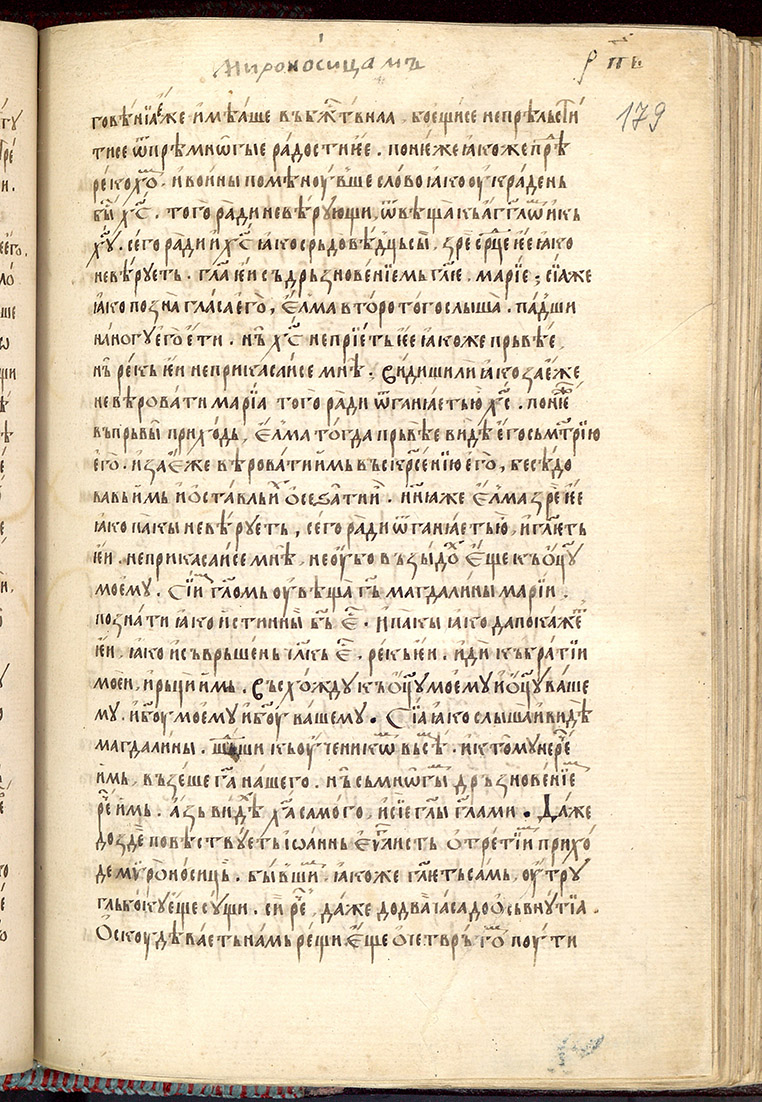 мироносицамъ
рп҃в
179
говѣнїа еже имѣаше въ бж҃твнаа . боещисе непрѣльсти
тисе ѿ прѣмнѡгые радости ѥе . понѥже ꙗкоже прѣ
рекохѡ . и воины поменоувше слово ꙗко оукрадень
бы х҃с . того ради невѣрующи, ѿвѣща къ агг҃лѡ ꙗкь
х҃у . сего ради и х҃с ꙗко срьдовѣдць сы , зре ср҃це ѥе ꙗко
невѣруеть . гл҃а ѥи съ дрьзновенїемь гл҃ѥ . марїе ; сїа же
ꙗко позна глась его , елма второ того слыша . падши
на ногу его ети . нь х҃с не прїеть ѥе ꙗкоже прьвѣе ,
нь рекь ѥи не прикасаисе мнѣ ; видиши ли ꙗко за еже
не вѣровати марїа того ради ѿганꙗеть ю х҃с . понѥ
въ прьвы приходь , елма тогда прьвѣе видѣ его сь мт҃рїю
его . и за еже вѣровати имь въскрⷭенїю его , бесѣдо
вавь имь и оставльи осезати и . нн꙯ꙗ же елма зре ѥе
ꙗко пакы невѣруеть , сего ради ѿганꙗеть ю , и гл҃еть
ѥи . не прикасаисе мнѣ , не оубо възыдо еще къ оц҃у
моему . Сїи гл҃омь оувѣща г҃ь магдалины марїи .
познати ꙗко истинны б҃ь е . и пакы ꙗко да покаже
ѥи , ꙗко и съврьшень чл҃кь е . рекь ѥи . иди къ братїи
моеи , и рьци имь . въсхожду къ оц҃у моему и оц҃у ваше
му . и б҃оу моему и б҃оу вашему . Сїа ꙗко слыша и видѣ
магдалины . шьши кь оученикѡ вьсѣ . и к тому не ре
имь , въземше г҃а нашего . нь сь мнѡгы дрьзновенїе
ре имь . азь видѣ х҃а самого , и сїе гл҃ы гл҃ами . Даже
до зде повѣствуеть їѡаннь еѵг҃листь о третїи прихо
де мѵроносиць . бывши . ꙗкоже гл҃еть самь , оутру
глькоку еще сущи . си ре , даже до два часа до осьвнутїа .
Оскоудѣваеть намь рещи еще о четврьто поути